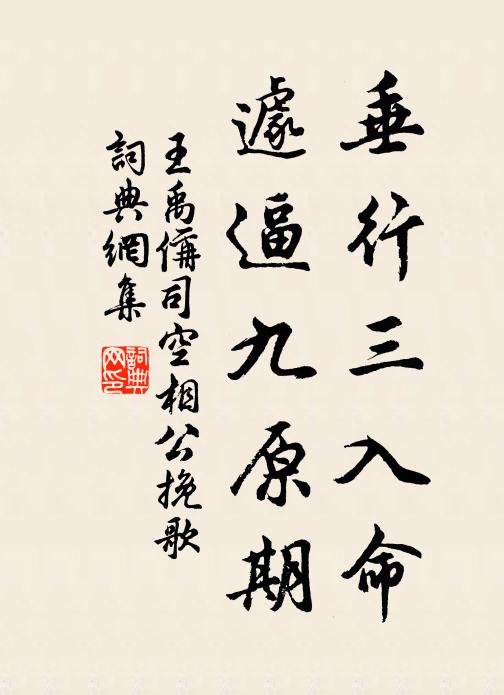 垂行三入命
遽逼九原期
王禹偁司空相公挽歌
詞典網集
詞典
网印